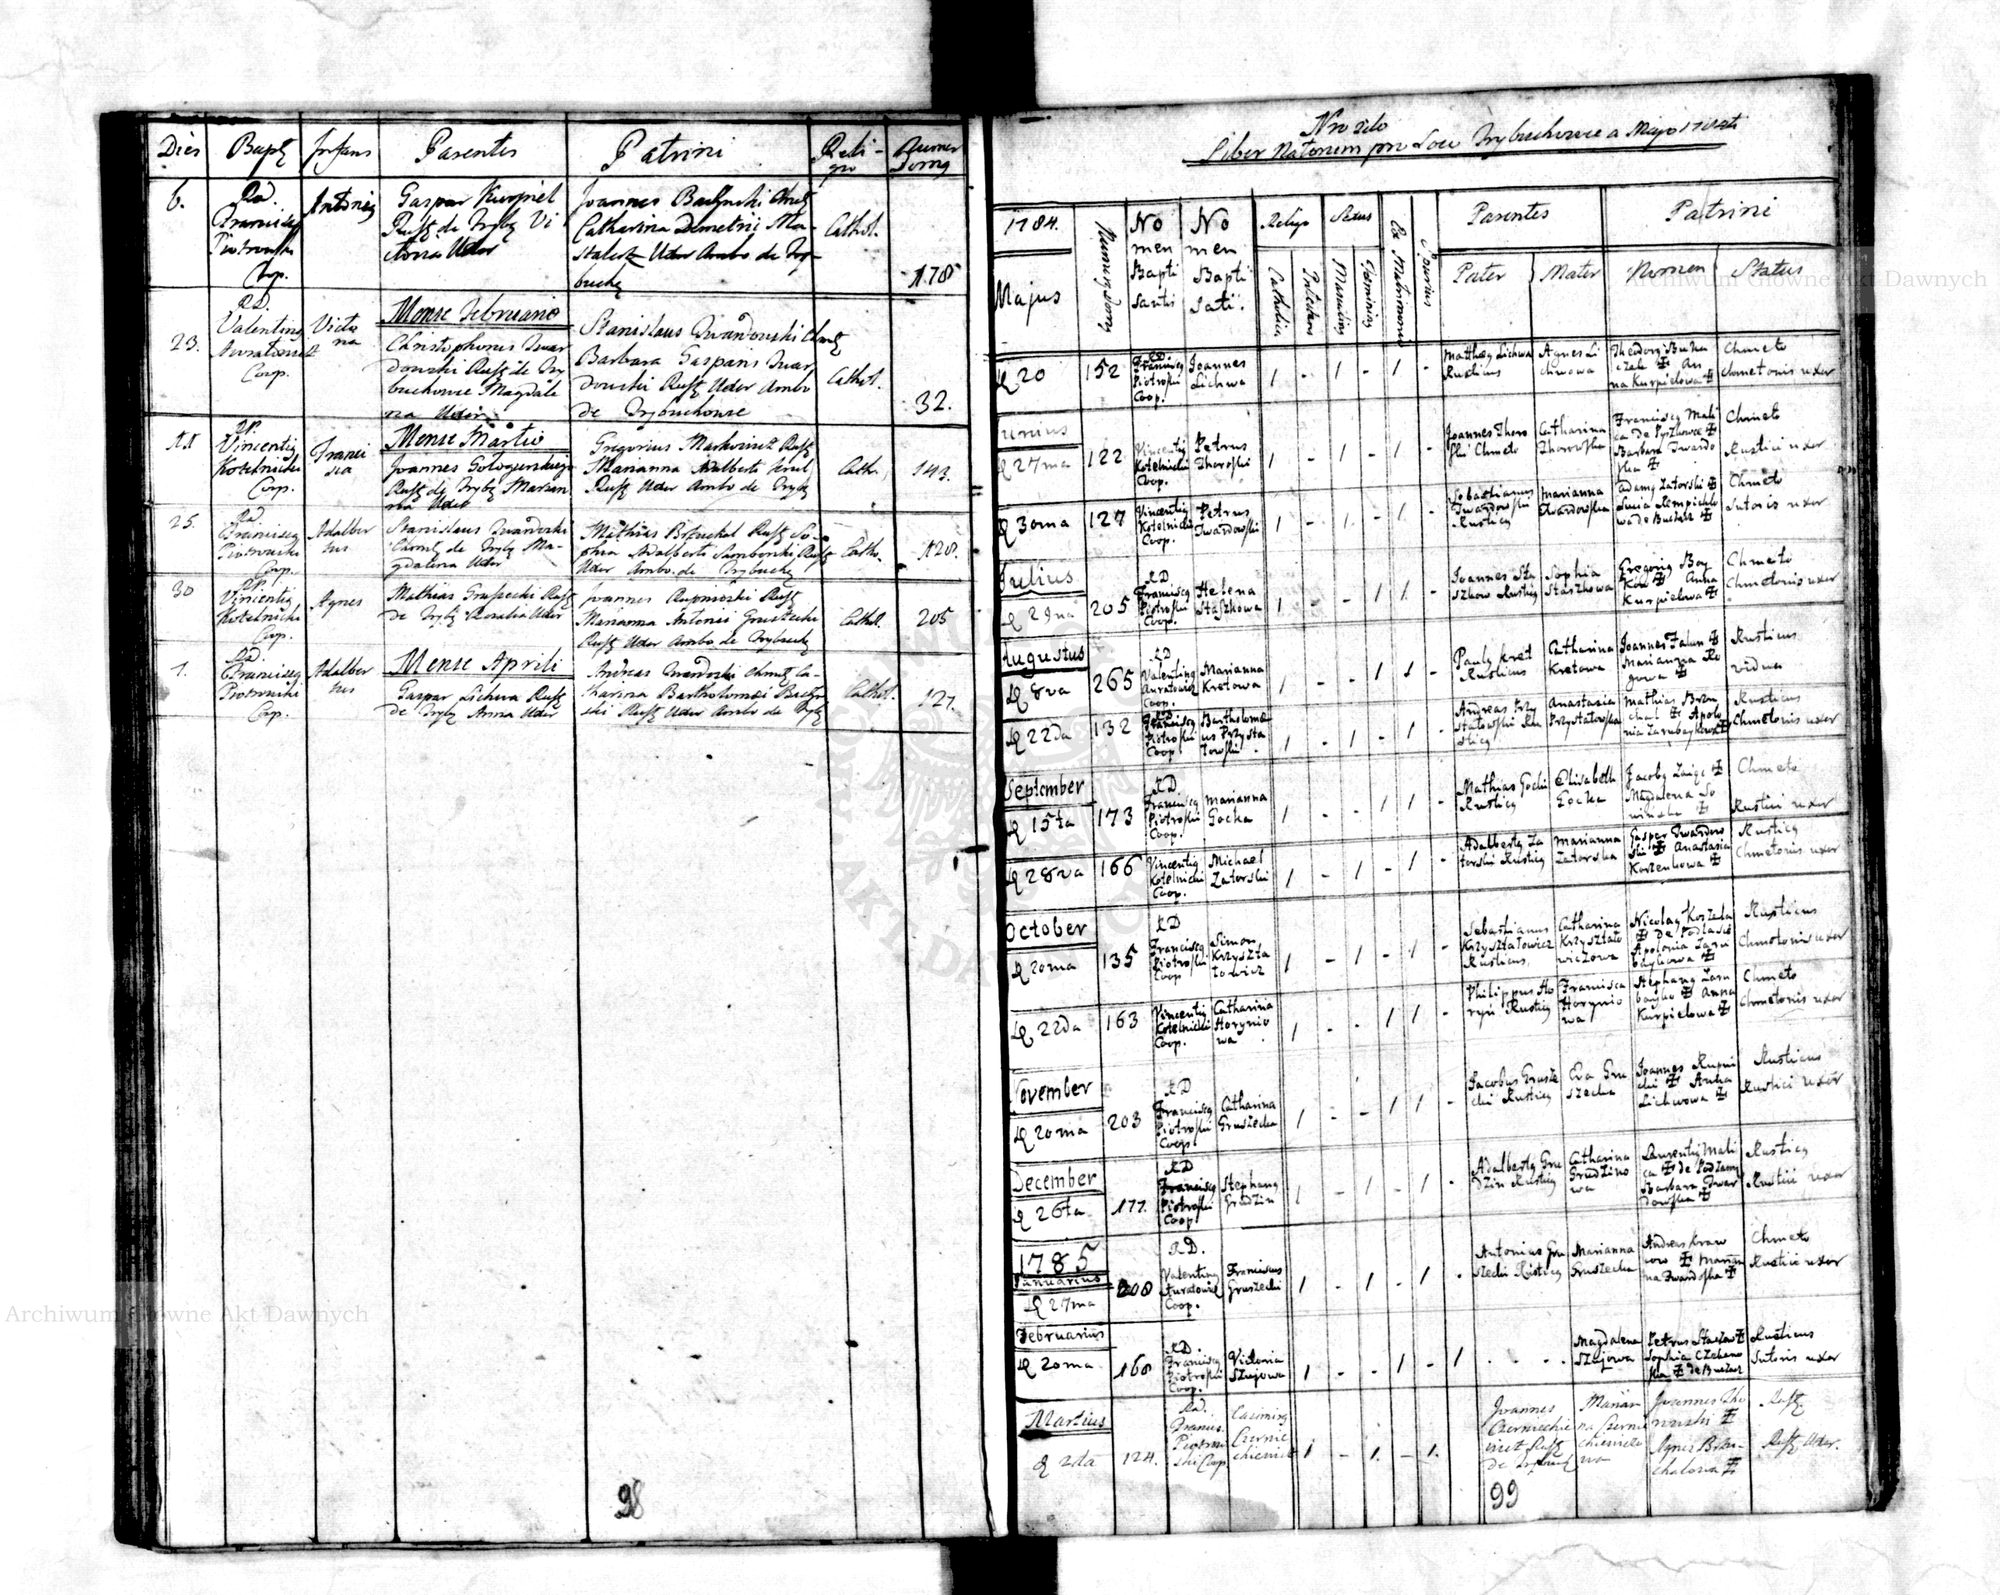 Dies
Bapt
Infans
Parentes
Patrini
Reli-
gio
Numer
Domy
6.
Rd.
Francisc
Piotrowski
Cop.
Antoni
Gaspar Kurpiel
de Tryb Vi
ctoria Uxor
Joannes
Catharina Demetrii
Uxor Ambo de Try-
Cathol.
178
Mense Februario
23.
RD.
Valentin
Coop.
Victo
ria
Christophorus Twar
dowski Rust de Try
buchowce Magdale
na Uxor
Stanislaus Twardowski
Barbara Gasparis Twar
dowski Rust Uxor Ambo
de Trybuchowce
Cathol.
32.
Mense Martio
11
Vincenti
Kotelnicki
Coop.
Franci
sca
Joannes
Rust de Tryb Marian
na Uxor
Gregorius Markowicz Rust
Marianna Adalberti
Rust Uxor Ambo de Tryb
Cath.
143.
25.
Rd
Francisc
Piotrowski
Coop.
Adalber
tus
Stanislaus Twardoski
de Tryb Ma-
gdalena Uxor
Mathias Brzuchal Rust So-
phia Adalberti Samborski Rust
Uxor Ambo de Trybuch
Catho.
128.
30
Vincenti
Kotelnicki
Cop.
Agnes
Mathias Gruszecki Rust
de Tryb Rosalia Uxor
Joannes Rupnicski Rust
Marianna Antonii Gruszecki
Rust Uxor Ambo de Trybuch
Cathol.
205
Mense Aprili
1.
Rd.
Francisc
Piotrowski
Cop.
Adalber
tus
Gaspar Lichwa Rust
de Tryb Anna Uxor
Andreas Twardoski Ca-
tharina Bartholomei
Rust Uxor Ambo de Tryb
Cathol.
127.
98
Nro 2do
Liber Natorum pro Loco Trybuchowce a Majo 1784ti
1784.
Majus
Numerus Domy
No
men
Bapti
santis
No
men
Bapti
sati.
Religio
Catholica
Sexus
Masculin
Feminin
Ex Matrimonio
Spurius
Parentes
Pater
Mater
Patrini
Nomen
Status
D 20
152
RD.
Francisc
Piotroski
Coop.
Joannes
Lichwa
1 - 1 - 1 -
Matthey Lichwa
Rusticus
Agnes Li
chwowa
Theodory Bucha
czek ‡ An
na Kurpielowa ‡
Chmeto
Chmetonis uxor
Junius
D 27ma
122
Vincenti
Kotelnicki
Coop.
Petrus
Thoroski
1 - 1 - 1 -
Joannes Thoro
ski Chmeto
Catharina
Thoroska
Francisc Mali
ca de Pyszkowce ‡
Barbara Twardo
ska ‡
Chmeto
Rustici uxor
D 30ma
127
Vincenti
Kotelnicki
Coop.
Petrus
Twardowski
1 - 1 - 1 -
Sebastianus
Twardowski
Rusticy
Marianna
Twardowska
Adamy Zatorski ‡
Lucia
wa de Buchacz ‡
Chmeto
Sutoris uxor
Julius
D 29na
205
RD.
Francisc
Piotroski
Coop.
Helena
Staszkowa
1 - - 1 1 -
Joannes Sta
szkow Rusticy
Sophia
Staszkowa
Gregorig Boy
ko ‡ Anna
Kurpielowa ‡
Chmeto
Chmetonis uxor
Augustus
D 8va
265
RD
Valenting
Auratowicz
Coop.
Marianna
Kretowa
1 - - 1 1 -
Pauly Kret
Rusticus
Catharina
Kretowa
Joannes Falun ‡
Marianna Ro
gowa ‡
Rusticus
vidua
D 22da
132
RD
Francisc
Piotroski
Coop.
Bartholomæ
us Przysta
łowski
1 - 1 - 1 -
Andreas Przy
stałowski Ru
sticy
Anastasia
Przystałowska
Mathias Brzu
chal ‡ Apolo
nia Zarubaykowa ‡
Rusticus
Chmetonis uxor
September
D 15ta
173
RD
Francisc
Piotroski
Coop.
Marianna
Gocka
1 - - 1 1 -
Mathias Gocki
Rusticy
Elisabeth
Gocka
Jacoby Zaigr ‡
Magdalena So
winska ‡
Chmeto
Rustici uxor
D 28va
166
Vincenti
Kotelnicki
Coop.
Michael
Zatorski
1 - 1 - 1 -
Adalberty Za
torski Rusticy
Marianna
Zatorska
Gaspar Twardow
ski ‡ Anastasia
Korzenkowa ‡
Rusticy
Chmetonis uxor
October
D 20ma
135
RD
Francisc
Piotroski
Coop
Simon
Krzyszta
łowicz
1 - 1 - 1 -
Sebastianus
Krzyształowicz
Rusticus.
Catharina
Krzyształo
wiczowa
Nicolay Koszela
‡ de Podlasie
Apolonia Zaru
baykowa ‡
Rusticus
Chmetonis uxor
D 22da
163
Vincenti
Kotelnicki
Coop.
Catharina
Horynio
wa
1 - - 1 1 -
Philippus Ho
ryn Rusticy
Francisca
Horynio
wa
Stephany Zaru
bayko ‡ Anna
Kurpielowa ‡
Chmeto
Chmetonis uxor
November
D 20ma
203
RD
Francisc
Piotroski
Coop
Catharina
Gruszecka
1 - - 1 1 -
Jacobus Grusze
cki Rusticy
Eva Gru
szecka
Joannes Rupni
cki ‡ Anna
Lichwowa ‡
Rusticus
Rustici uxor
December
D 26ta
177.
RD
Francisc
Piotroski
Coop
Stephany
Grudzin
1 - 1 - 1 -
Adalberty Gru
dzin Rusticy
Catharina
Grudzino
wa
Laurenty Mali
ca ‡ de Podzamy
Barbara Twar
dowska ‡
Rusticy
Rustici uxor
1785
Januarius
D 27ma
208
RD.
Valenting
Auratowicz
Coop.
Franciscus
Gruszecki
1 - 1 - 1 -
Antonius Gru
szecki Rusticy
Marianna
Gruszecka
Andreas Kraw
cow ‡ Marian
na Twardoska ‡
Chmeto
Rustici uxor
Februarius
D 20ma
168
RD.
Francisc
Piotroski
Coop.
Victoria
Szujowa
1 - - 1 - 1
Magdalena
Szujowa
Petrus Staszow ‡
Sophia
ska ‡ de Buczacz
Rusticus
Sutoris uxor
Martius
D 2da
124.
Rd.
Francis.
Piotrow
ski Cop.
Casimirus
Czernie
chiewicz
1 - 1. - 1.
Joannes
Czerniechie
wicz Rust
de Trybuch
Marian
na Czernie
chiewiczo
wa
Joannes Tho
rowski ‡
Agnes Brzu-
chalowa ‡
Rust
Rust Uxor.
99
Archiwum Główne Akt Dawnych
Archiwum Główne Akt Dawnych